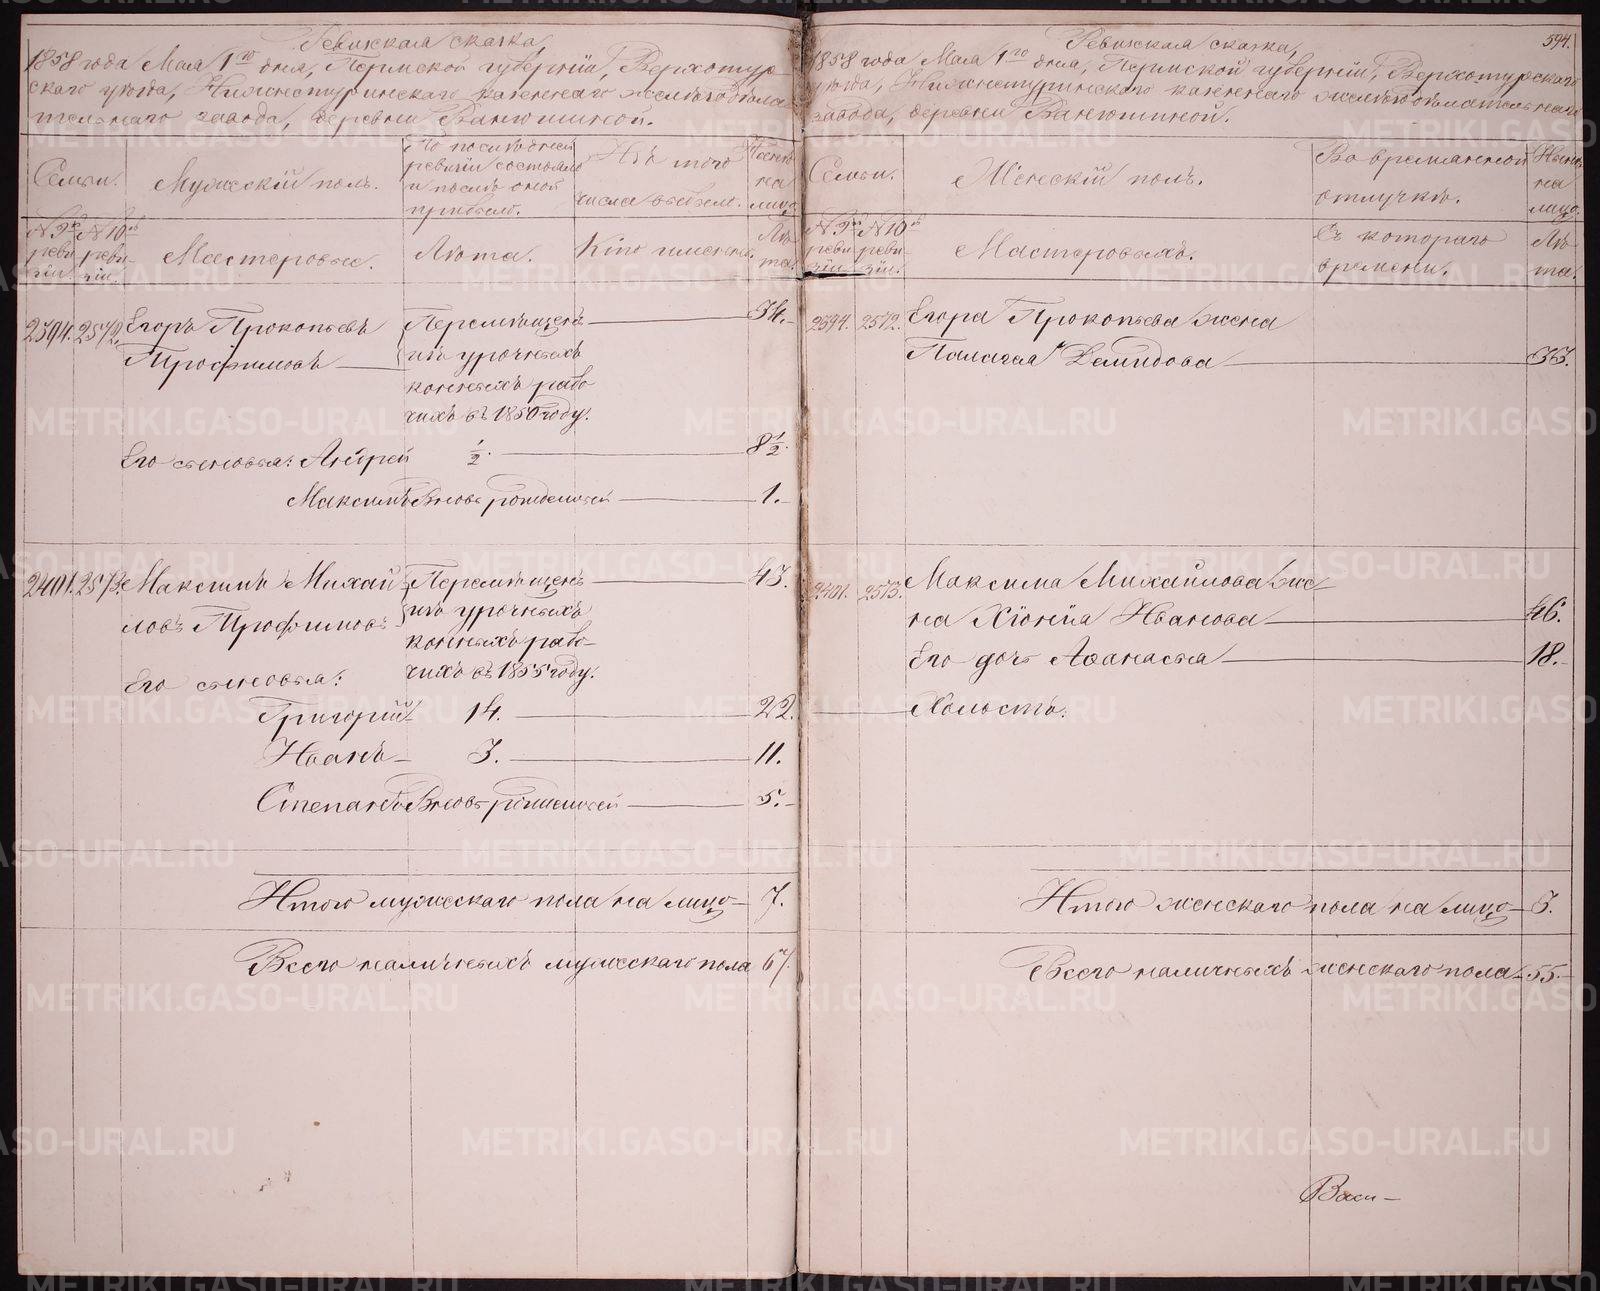 Ревизская сказка,
1858 года Мая 1го дня, Пермской губерніи, Верхотур
скаго уѣзда, Нижнетуринскаго казеннаго желѣзодѣла
тельнаго завода, деревни Ванюшиной.
Семьи.
Мужескій полъ.
По послѣдней
ревизіи состояло
и послѣ оной
прибыло.
Изъ того
числа выбыло.
Нынѣ
на
лицо
№ 9й
реви
зіи.
№ 10й
реви-
зіи.
Мастеровые.
Лѣта.
Лѣ
та.
2594. 2572. Егоръ Прокопьевъ
Трофимовъ
Перемѣщенъ
изъ урочныхъ
конныхъ рабо
чихъ въ 1850 году.
34.
Его сыновья: Андрей 1/2. 8 1/2
Максимъ Вновь рожденный 1.
2401. 2573. Максимъ Михай
ловъ Трофимовъ
Перемѣщенъ
изъ урочныхъ
конныхъ рабо-
чихъ въ 1855 году.
43.
Его сыновья:
Григорій 14. 22.
Иванъ 3. 11.
Степанъ Вновь рожденный 5.
Итого мужескаго пола на лицо 7.
Всего наличныхъ мужескаго пола 67.
594.
Ревизская сказка,
1858 года Мая 1го дня, Пермской губерніи, Верхотурскаго
уѣзда, Нижнетуринскаго казеннаго желѣзодѣлательнаго
завода, деревни Ванюшиной.
Семьи.
Женскій полъ.
Во временной
отлучкѣ.
Нынѣ
на
лицо
№ 9й
реви-
зіи.
№ 10й
реви-
зіи.
Мастеровыхъ.
Съ котораго
времени.
Лѣ-
та.
2594. 2572. Егора Прокопьева жена
Палагея Демидова 33.
2401. 2573. Максима Михайлова же-
на Хіонія Иванова 46.
Его дочь Аѳанасья 18.
Холостъ.
Итого женскаго пола на лицо 3.
Всего наличныхъ женскаго пола 55.
Васи-
METRIKI.GASO-URAL.RU